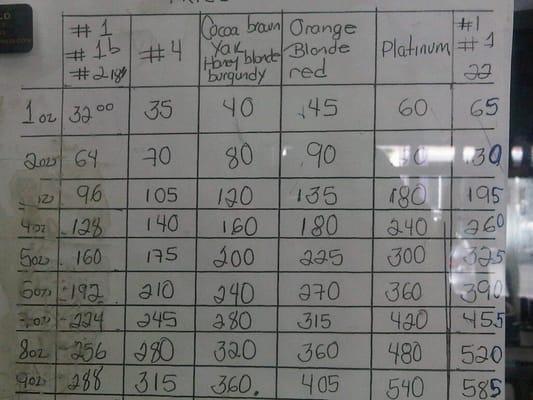 #1
#1b
#2
#4
Cocoa brown
Yak
Honey blonde
burgundy
Orange
Blonde
red
Platinum
#1
#1
22
1oz 32⁰⁰ 35 40 45 60 65
2oz 64 70 80 90 130
96 105 120 135 180 195
4oz 128 140 160 180 240 260
5oz 160 175 200 225 300 325
6oz 192 210 240 270 360 390
7oz 224 245 280 315 420 455
8oz 256 280 320 360 480 520
9oz 288 315 360. 405 540 585